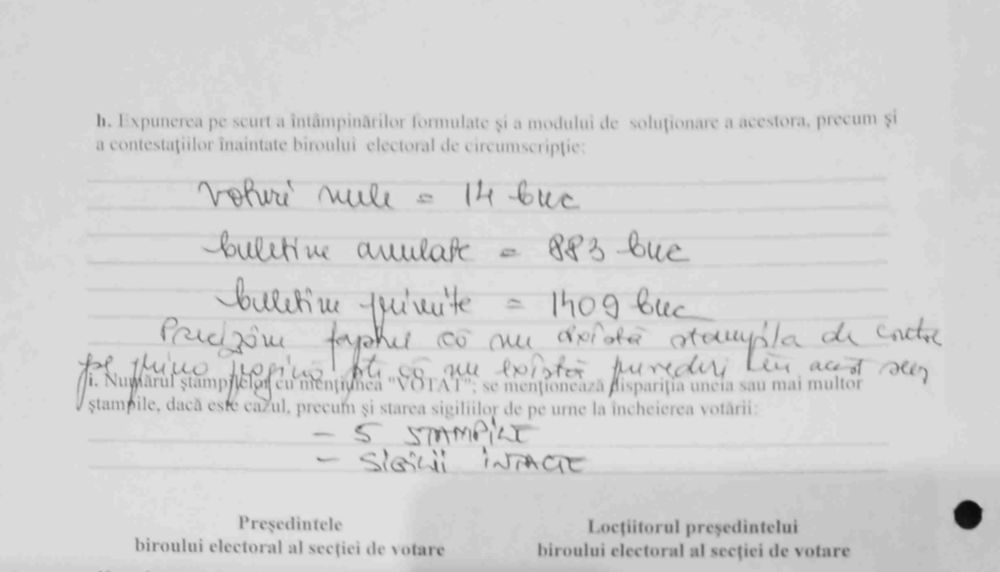 h. Expunerea pe scurt a întâmpinărilor formulate şi a modului de soluţionare a acestora, precum şi
a contestaţiilor înaintate biroului electoral de circumscripţie:
Voturi nule = 14 buc
buletine anulate = 883 buc
buletine primite = 1409 buc
Precizăm faptul că nu există stampila de
pe prima pagină ptr că nu există prevederi în acest sens
i. Numărul ştampilelor cu menţiunea "VOTAT"; se menţionează dispariţia uneia sau mai multor
ştampile, dacă este cazul, precum şi starea sigiliilor de pe urne la încheierea votării:
- 5 STAMPILE
- SIGILII INTACTE
Preşedintele
biroului electoral al secţiei de votare
Locţiitorul preşedintelui
biroului electoral al secţiei de votare